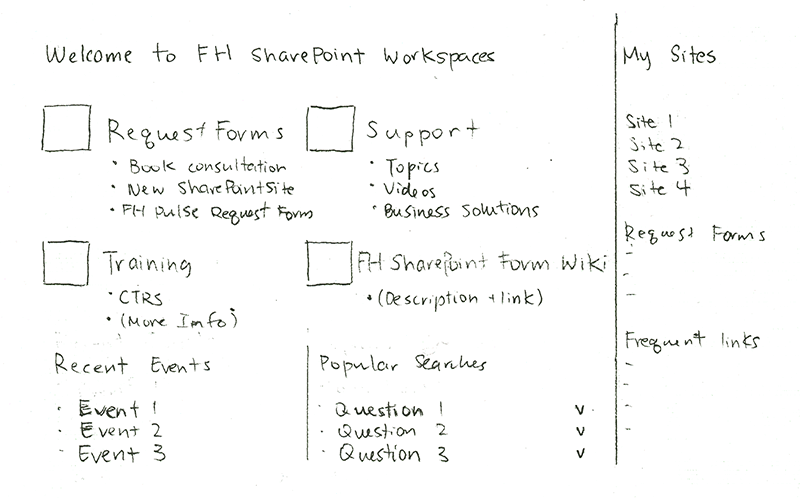 Welcome to FH SharePoint Workspaces
Request Forms
• Book consultation
• New SharePoint Site
• FH Pulse Request Form
Support
• Topics
• Videos
• Business Solutions
Training
• CTRS
• (More Info)
FH SharePoint Form Wiki
• (Description + link)
Recent Events
• Event 1
• Event 2
• Event 3
Popular Searches
• Question 1 v
• Question 2 v
• Question 3 v
My Sites
Site 1
Site 2
Site 3
Site 4
Request Forms
-
-
-
Frequent links
-
-
-
-